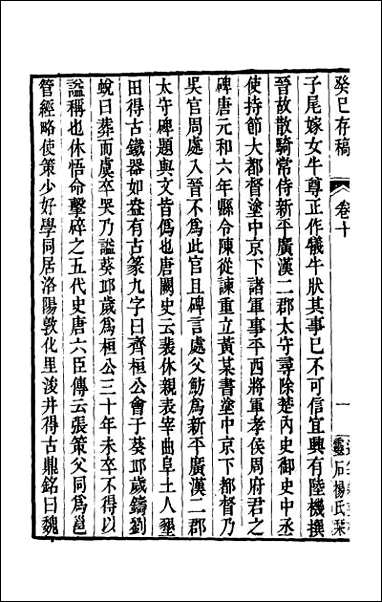 癸巳存稿 卷十 一 靈石楊氏栞
子尾嫁女牛尊正作犧牛狀其事已不可信宜興有陸機撰
晉故散騎常侍新平廣漢二郡太守尋除楚內史御史中丞
使持節大都督塗中京下諸軍事平西將軍孝侯周府君之
碑唐元和六年縣令陳從諫重立黃某書塗中京下都督乃
吳官周處入晉不爲此官且碑言處父魴爲新平廣漢二郡
太守碑題與文皆僞也唐闕史云裴休親表宰曲阜土人墾
田得古鐵器如盎有古篆九字曰齊桓公會于葵邱歲鑄劉
蛻曰葬而虞卒哭乃謚葵邱歲爲桓公三十年未卒不得以
謚稱也休悟命擊碎之五代史唐六臣傳云張策父同爲邕
管經略使策少好學同居洛陽敦化里浚井得古鼎銘曰魏